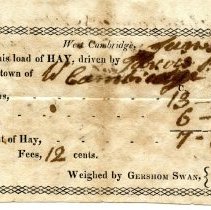 West Cambridge,
his load of HAY, driven by
town of W Cambridge
s, 13
6
t of Hay, 7
Fees, 12 cents.
Weighed by GERSHOM SWAN,